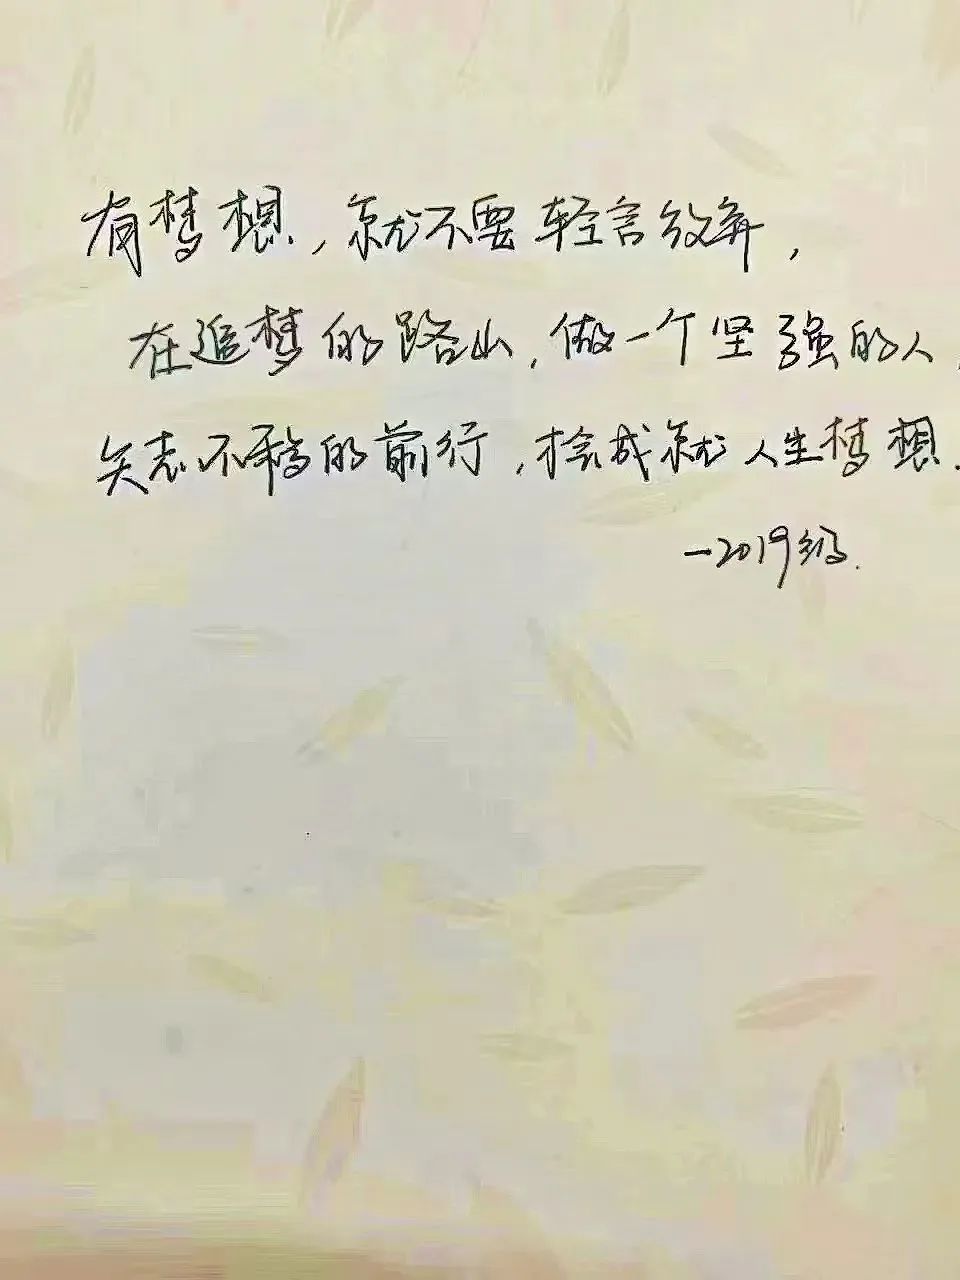 有梦想，就不要轻言放弃，
在追梦的路上，做一个坚强的人，
矢志不移的前行，拾成就人生梦想．
—2019级．